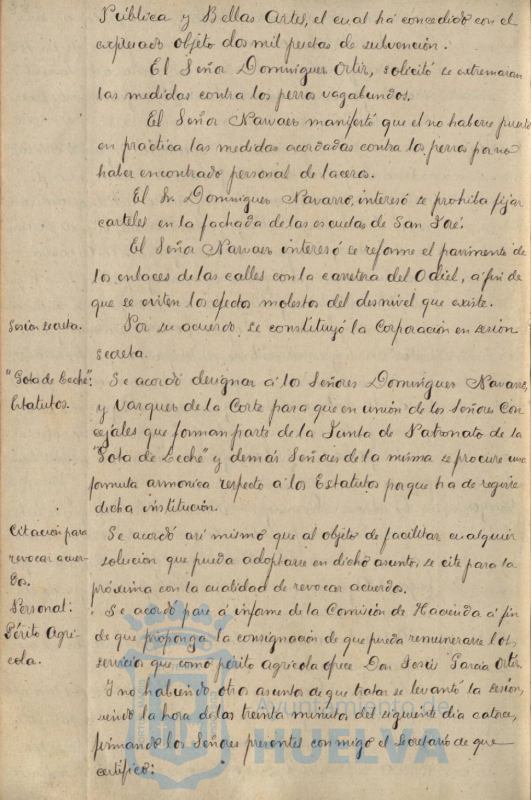 Pública y Bellas Artes, el cual há concedido con el
expresado objeto dos mil pesetas de subvención.
El Señor Dominguez Ortiz, solicitó se extremaran
las medidas contra los perros vagabundos.
El Señor Narvaez manifestó que el no haberse puesto
en práctica las medidas acordadas contra los perros por no
haber encontrado personal de laceros.
El Sr. Dominguez Navarro, interesó se prohiba fijar
carteles en la fachada de las escuelas de San José.
El Señor Narvaez interesó se reforme el pavimento de
los enlaces de las calles con la carretera del Odiel, á fin de
que se eviten los efectos molestos del desnivel que existe.
Sesión secreta.
Por su acuerdo, se constituyó la Corporación en sesión
secreta.
"Gota de Leche".
Estatutos.
Se acordó designar á los Señores Dominguez Navarro,
y Vazquez de la Corte para que en unión de los Señores Con-
cejales que forman parte de la Junta de Patronato de la
"Gota de Leche" y demás Señores de la misma se procure una
formula armonica respecto á los Estatutos porque ha de regirse
dicha institución.
Citación para
revocar acuer-
dos.
Se acordó asi mismo que al objeto de facilitar cualquier
solución que pueda adoptarse en dicho asunto, se cite para la
próxima con la cualidad de revocar acuerdos.
Personal:
Périto Agrí-
cola.
Se acordó pase á informe de la Comisión de Hacienda á fin
de que proponga la consignación de que pueda remunerarse los
servicios que como périto agrícola ofrece Don Jesús García Ortiz.
Y no habiendo otro asunto de que tratar se levantó la sesión,
siendo la hora de las treinta minutos del siguiente dia catorce,
firmando los Señores presentes conmigo el Secretario de que
certifico:
Ayuntamiento de
HUELVA